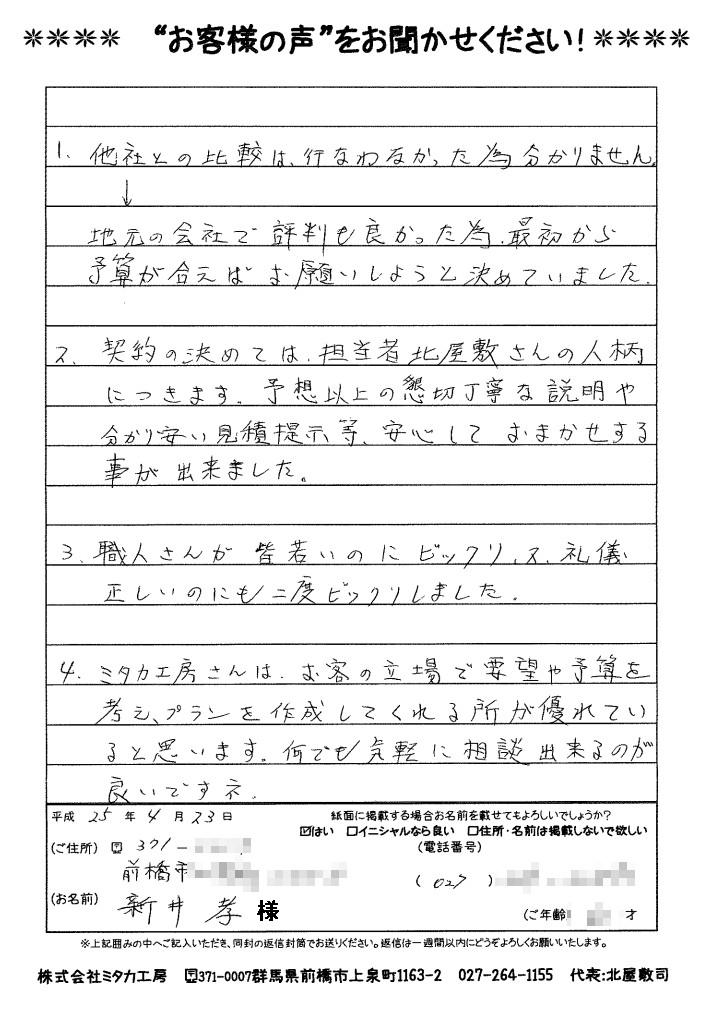 ＊＊＊＊ “お客様の声”をお聞かせください！＊＊＊＊
1. 他社との比較は、行なわなかった為分かりません。
↓
地元の会社で評判も良かった為、最初から
予算が合えばお願いしようと決めていました。
2. 契約の決めては、担当者北屋敷さんの人柄
につきます。予想以上の懇切丁寧な説明や
分かり安い見積提示等、安心しておまかせする
事が出来ました。
3. 職人さんが皆若いのにビックリ、又、礼儀
正しいのにも二度ビックリしました。
4. ミタカ工房さんは、お客の立場で要望や予算を
考え、プランを作成してくれる所が優れてい
ると思います。何でも気軽に相談出来るのが
良いですネ。
平成 25 年 4 月 23 日 紙面に掲載する場合お名前を載せてもよろしいでしょうか?
☑はい □イニシャルなら良い □住所・名前は掲載しないで欲しい
(ご住所) 〒 371- (電話番号)
前橋市 ( 027 )
(お名前) 新井 孝 様 (ご年齢 才
※上記囲みの中へご記入いただき、同封の返信封筒でお送りください。返信は一週間以内にどうぞよろしくお願いいたします。
株式会社ミタカ工房 〒371-0007群馬県前橋市上泉町1163-2 027-264-1155 代表:北屋敷司